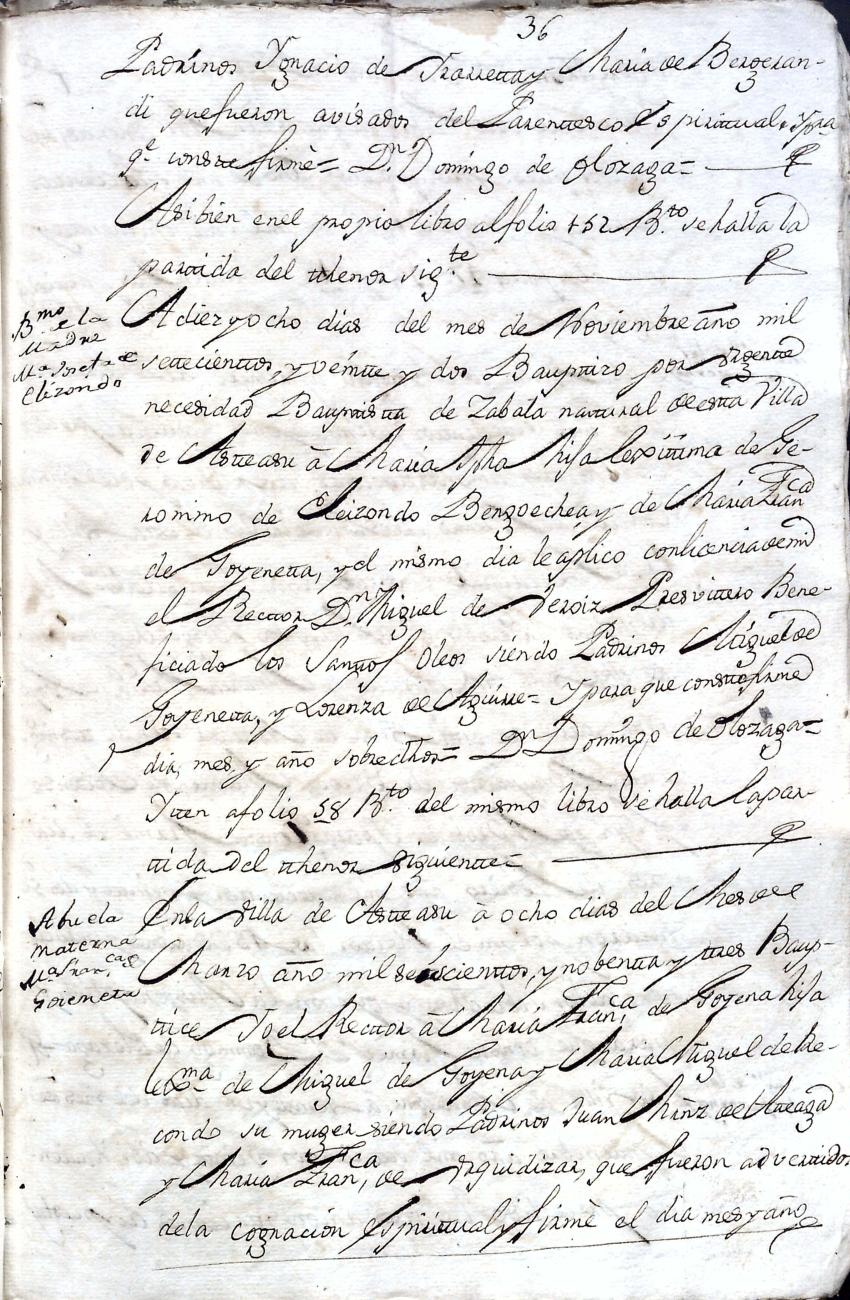 36
Padrinos Ygnacio de Yrarretta y Maria de Bergeran-
di que fueron avisados del Parenttesco Espirittual, Ypra
qe. constte firmè = Dn. Domingo de Olozaga =
Asibien enel propio libro alfolio 152 Bto. se halla la
parttida del tthenor sigte.
Bmo. de la
Madre
Ma. Josefa de
Elizondo
A diez y ocho dias del mes de Noviembre año mil
settecienttos, y veintte y dos Bauptizo por Urgentte
necesidad Bauptistta de Zabala nattural de estta Villa
de Astteasu â Maria Jpha hija lexittima de Ge-
ronimo de Eleizondo Bengoechea, y de Maria Franca
de Goyenetta, y el mismo dia le aplico con licencia de mi
el Rector Dn. Miguel de Veroiz Presvittero Bene-
ficiado los Santtos Oleos siendo Padrinos Miguel de
Goyenetta, y Lorenza de Aguirre = Y para que constte firme
dia, mes, y año sobredhos = Dn. Domingo de Olozaga =
Ytten afolio 58 Bto. del mismo libro se halla la par-
ttida del tthenor siguientte =
Abuela
materna
Ma. Franca. de
Goieneta
Enla Villa de Astteasu â ocho dias del Mes de
Marzo año mil seiscienttos, y nobentta y ttres Baup-
ttice Yo el Rector â Maria Franca. de Goyena hija
lexma. de Miguel de Goyena y Maria Miguel de Re-
condo su muger siendo Padrinos Juan Mrñz de Atteaga
y Maria Franca, de Urquidizar, que fueron adverttidos
dela cognación Espirittual y firmè el dia mes y año